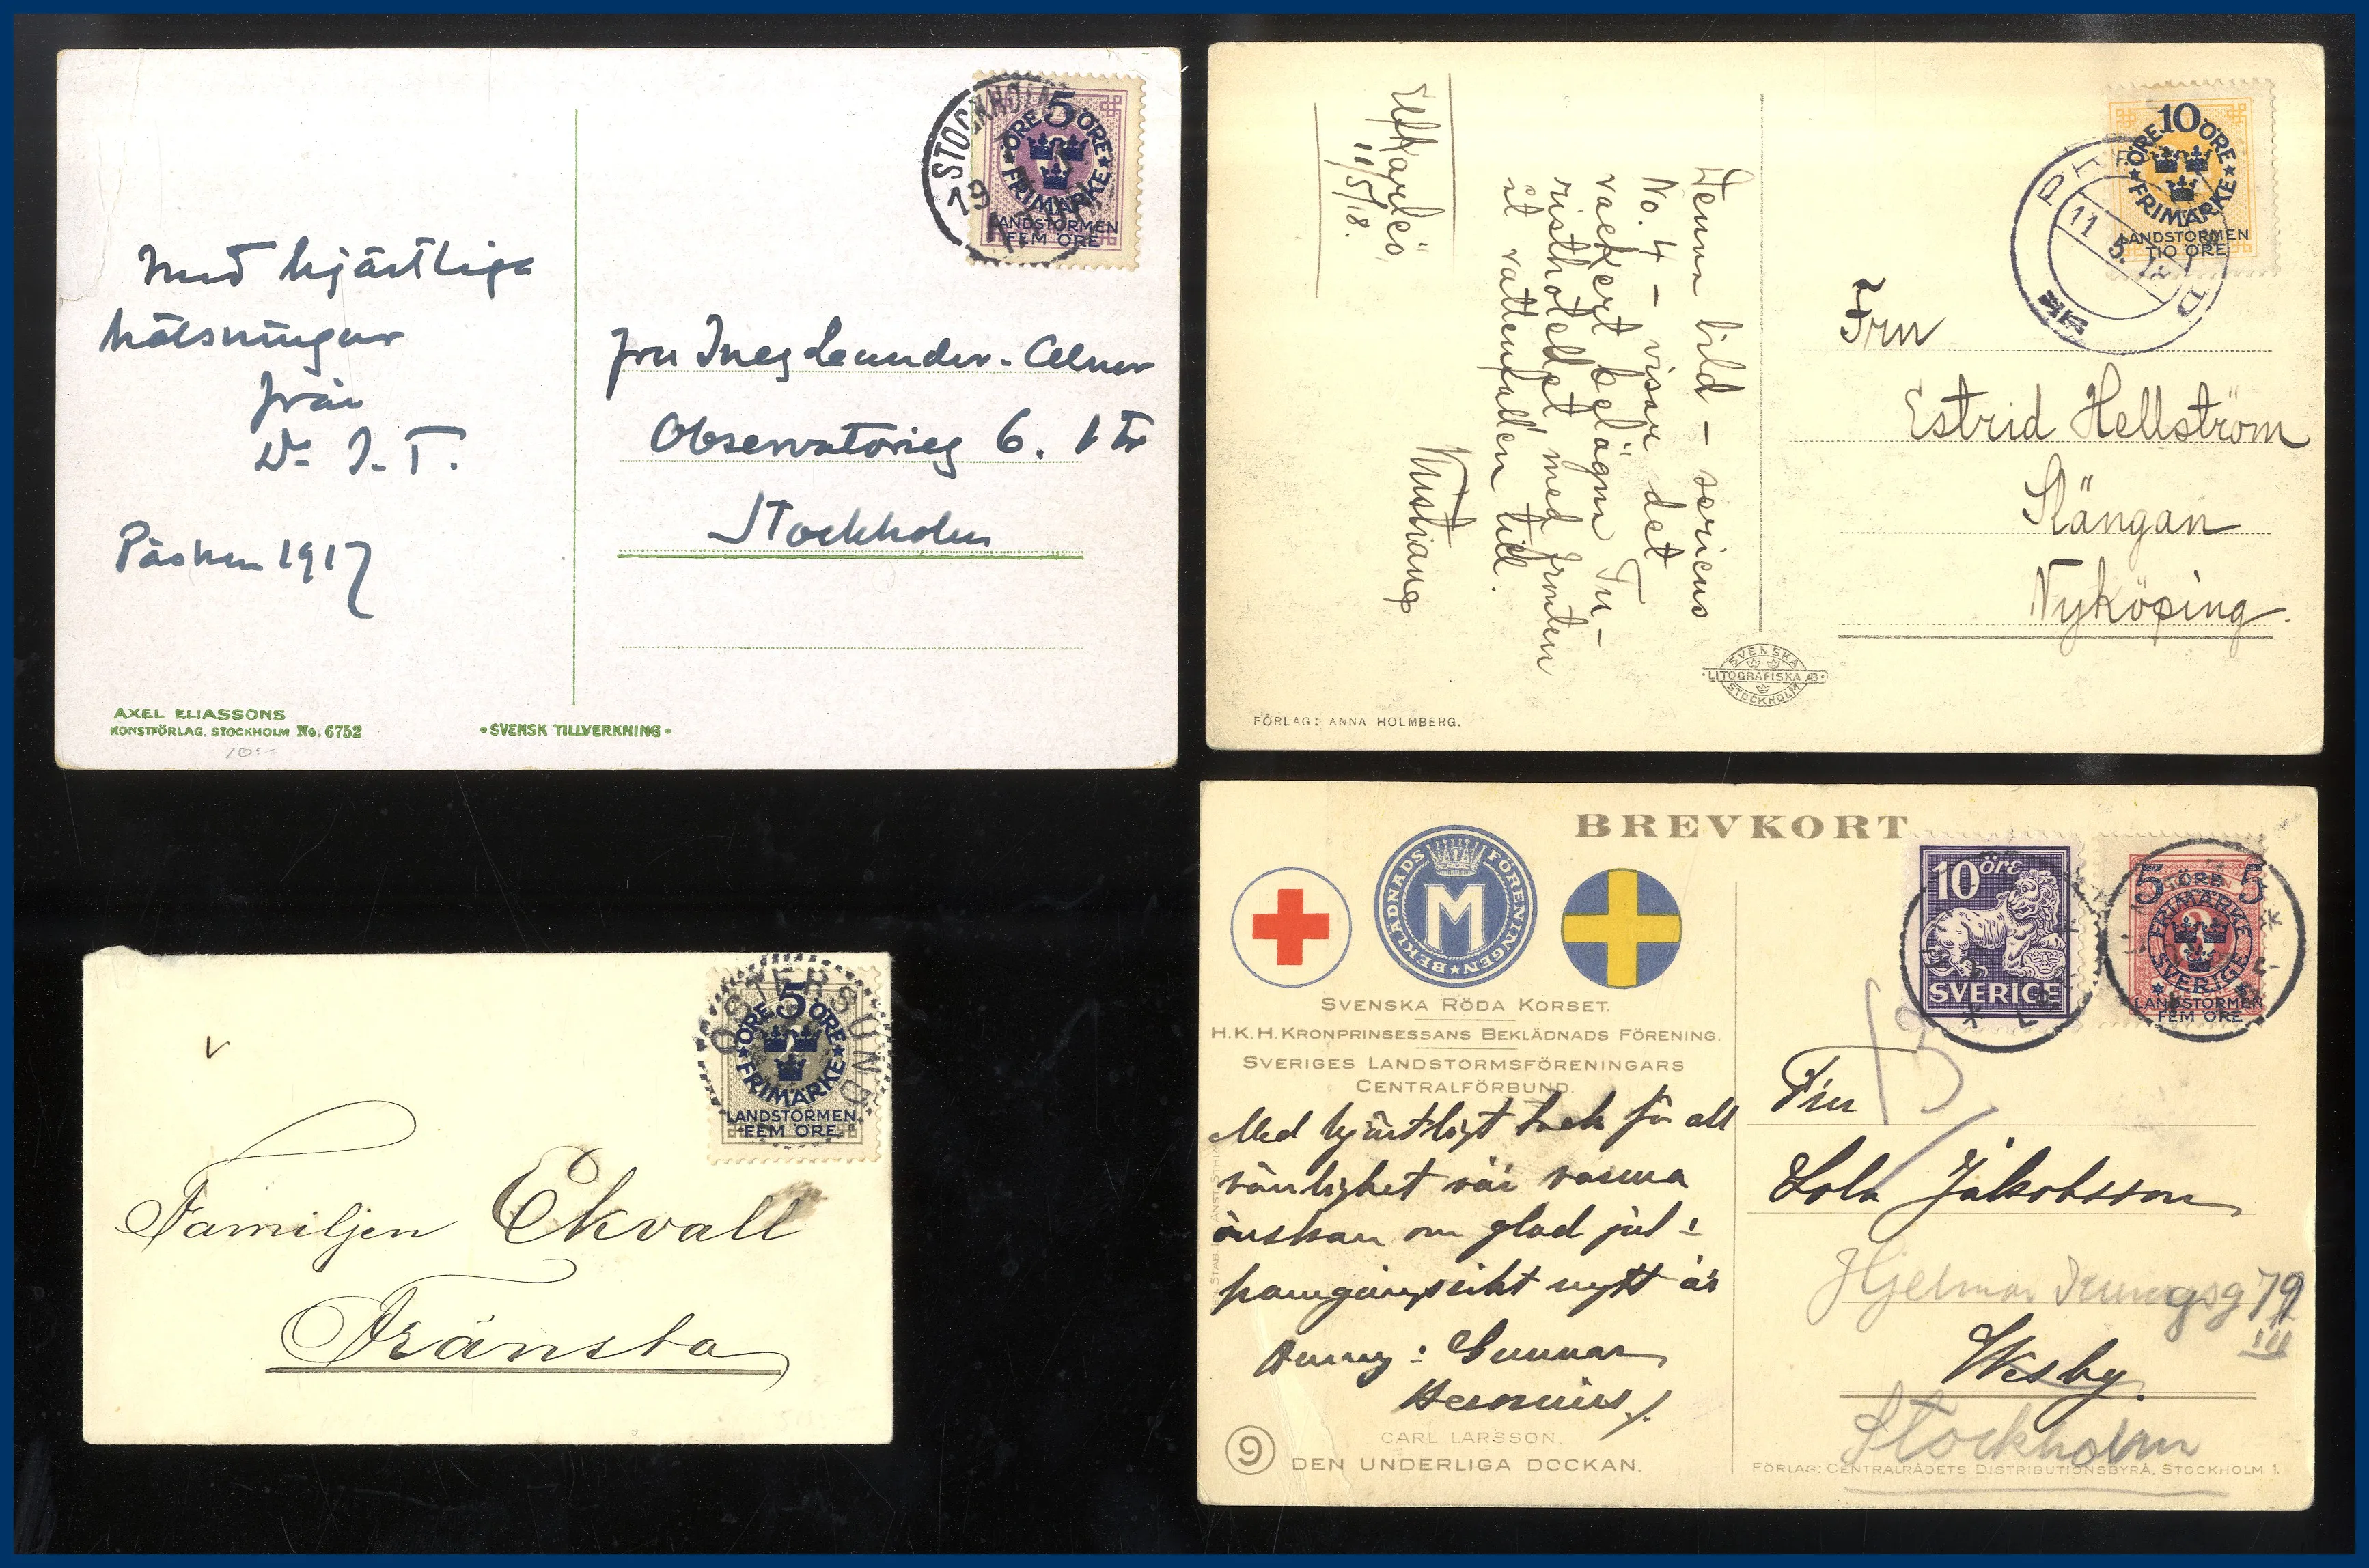 STOCKHOLM
5
ÖRE ÖRE
FRIMÄRKE
LANDSTORMEN
FEM ÖRE
Med hjärtliga
hälsningar
från
Dr J. T.
Påsken 1917
Fru Inez Leander-
Observatorieg 6. 1 tr
Stockholm
AXEL ELIASSONS
KONSTFÖRLAG. STOCKHOLM No. 6752
10:-
•SVENSK TILLVERKNING•
10
ÖRE ÖRE
FRIMÄRKE
LANDSTORMEN
TIO ÖRE
11 5
Denna bild – seriens
No. 4 – visar det
vackert belägna Tu-
risthotellet med fronten
åt vattenfallen till.
Elfkarleö
11/5/18.
Fru
Estrid Hellström
Slängan
Nyköping.
SVENSKA
LITOGRAFISKA AB
STOCKHOLM
FÖRLAG: ANNA HOLMBERG.
ÖSTERSUND
5
ÖRE ÖRE
FRIMÄRKE
LANDSTORMEN
FEM ÖRE
Familjen Ekvall
Fränsta
BREVKORT
BEKLÄDNADS FÖRENINGEN
M
10 öre
SVERIGE
5 ÖRE 5
FRIMÄRKE
SVERIGE
LANDSTORMEN
FEM ÖRE
SVENSKA RÖDA KORSET.
H.K.H. KRONPRINSESSANS BEKLÄDNADS FÖRENING.
SVERIGES LANDSTORMSFÖRENINGARS
CENTRALFÖRBUND.
Med hjärtligt tack för all
vänlighet vår varma
önskan om glad jul &
framgångsrikt nytt år
Gunnar
Fru
Lola Jakobsson
Hjelmar 79
III
Wisby.
Stockholm
9
CARL LARSSON.
DEN UNDERLIGA DOCKAN.
FÖRLAG: CENTRALRÅDETS DISTRIBUTIONSBYRÅ, STOCKHOLM 1.